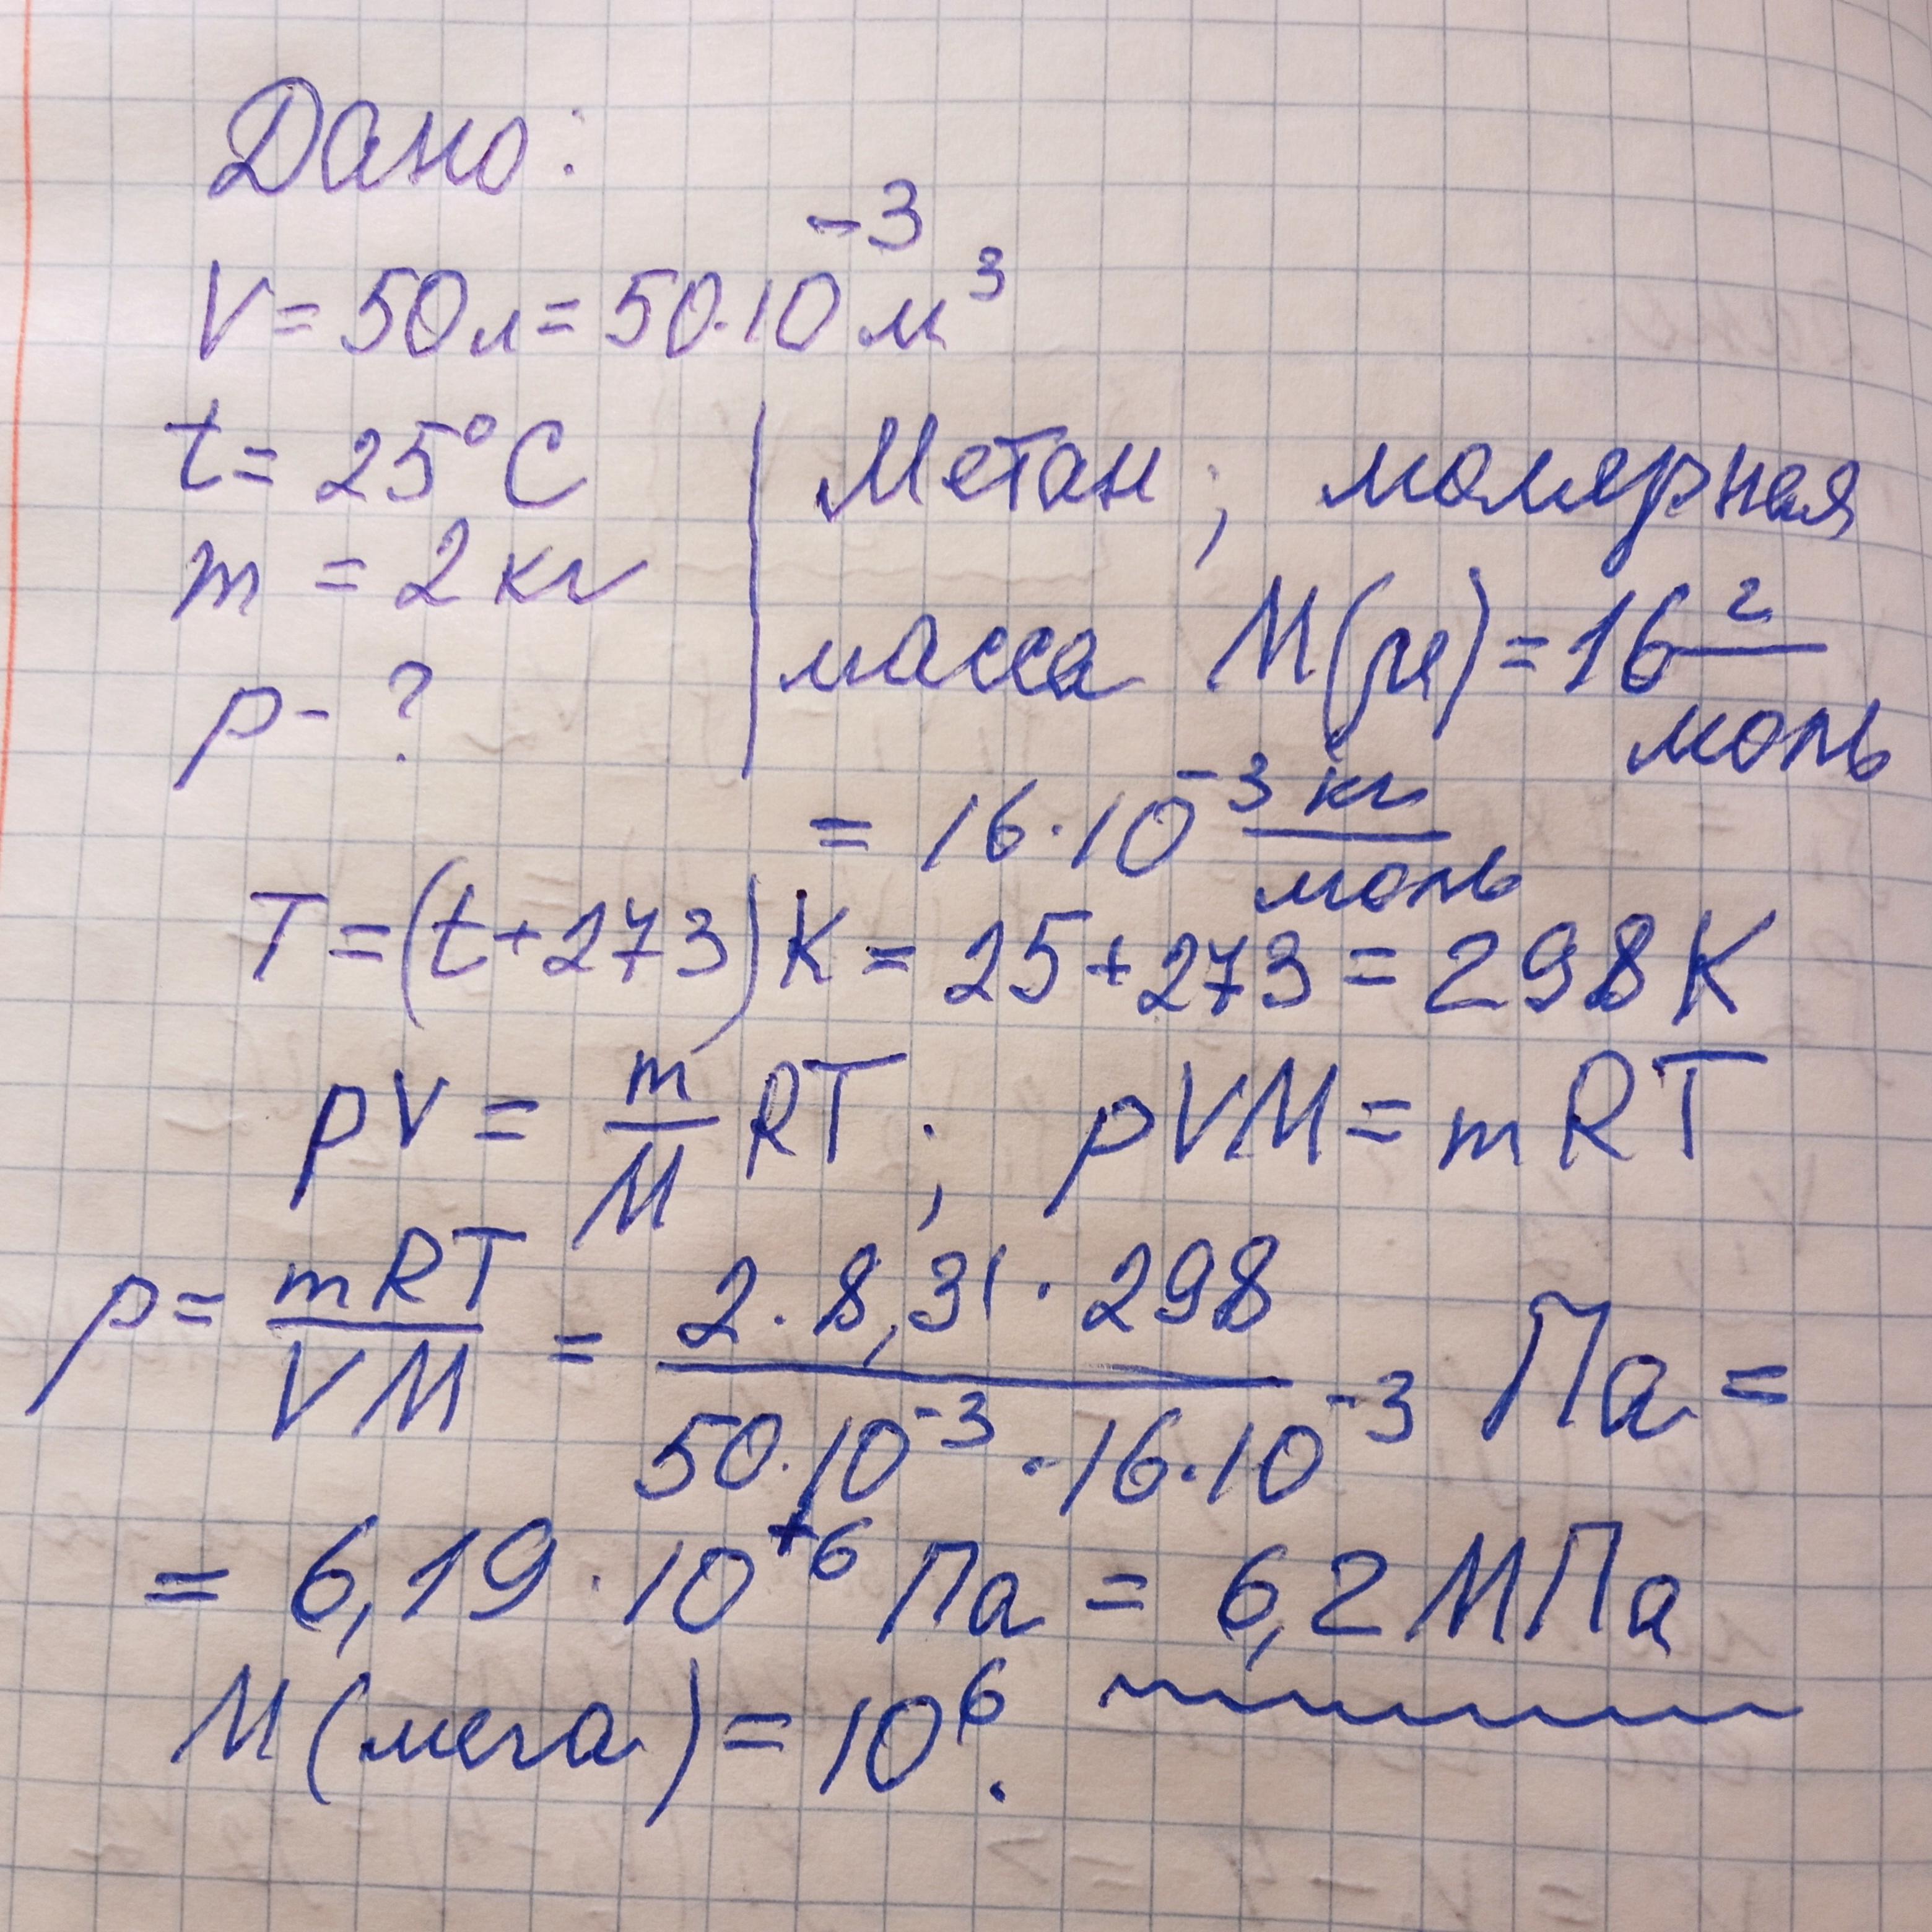 Дано:
V = 50 л = 50·10⁻³ м³
t = 25°C
m = 2 кг
p - ?
Метан; молярная
масса M(μ) = 16 г/моль
= 16·10⁻³ кг/моль
T = (t+273)K = 25+273 = 298 K
pV = m/M RT; pVM = mRT
p = mRT/VM = 2·8,31·298/50·10⁻³·16·10⁻³ Па =
= 6,19·10⁺⁶ Па = 6,2 МПа
М(мега) = 10⁶.